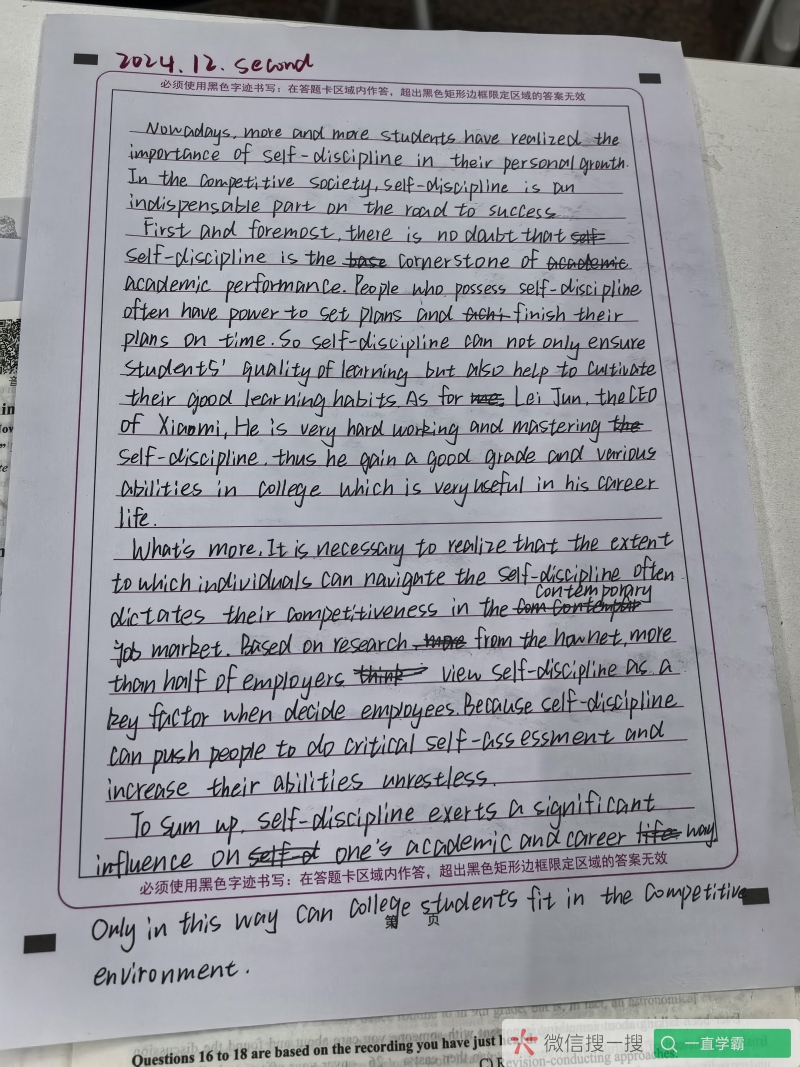 2024.12. second
必须使用黑色字迹书写：在答题卡区域内作答，超出黑色矩形边框限定区域的答案无效
Nowadays, more and more students have realized the
importance of self-discipline in their personal growth.
In the competitive society, self-discipline is an
indispensable part on the road to success
First and foremost, there is no doubt that self-
self-discipline is the base cornerstone of academic
academic performance. People who possess self-discipline
often have power to set plans and achi finish their
plans on time. So self-discipline can not only ensure
students' quality of learning but also help to cultivate
their good learning habits. As for Lei Jun, the CEO
of Xiaomi, He is very hard working and mastering the
self-discipline, thus he gain a good grade and various
abilities in college which is very useful in his career
life.
What's more, It is necessary to realize that the extent
to which individuals can navigate the self-discipline often
contemporary
dictates their competitiveness in the com contempor
job market. Based on research, more from the hownet, more
than half of employers think view self-discipline as a
key factor when decide employees. Because self-discipline
can push people to do critical self-assessment and
increase their abilities unrestless.
To sum up, self-discipline exerts a significant
influence on self-d one's academic and career life way
必须使用黑色字迹书写：在答题卡区域内作答，超出黑色矩形边框限定区域的答案无效
Only in this way can college students fit in the competitive
第 页
environment.
Questions 16 to 18 are based on the recording you have just
微信搜一搜
一直学霸